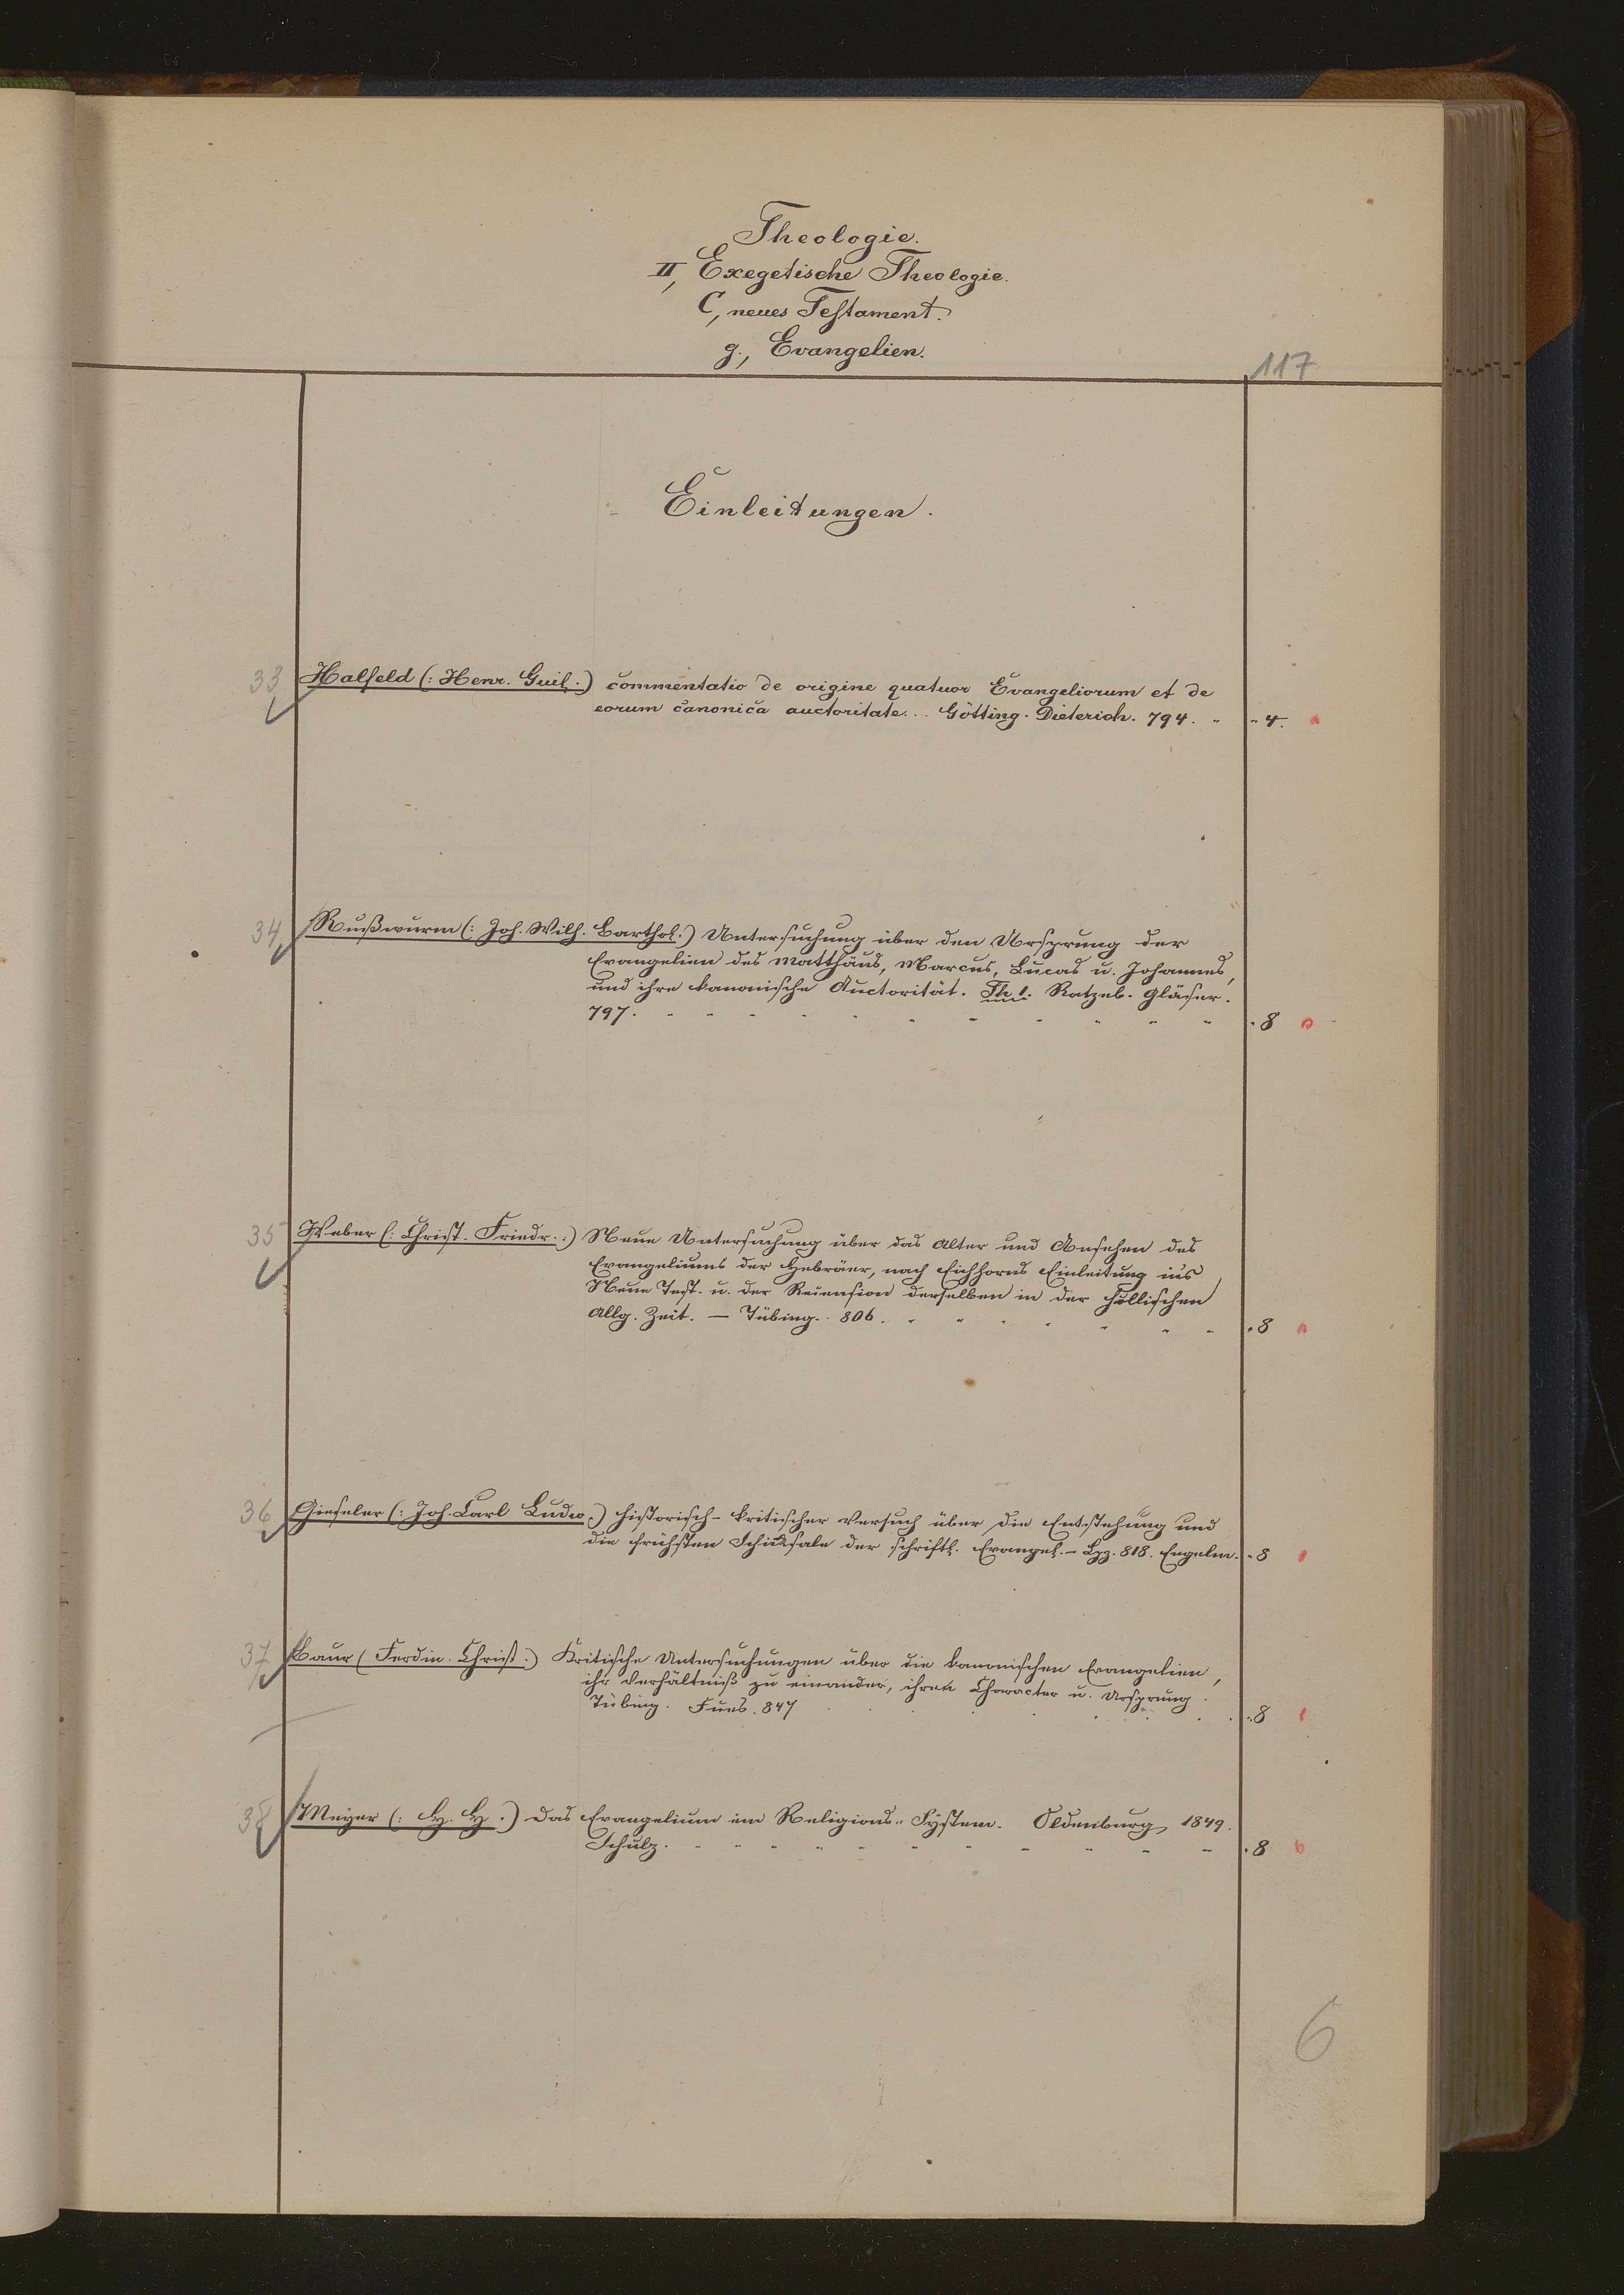 Theologie.
II, Exegetische Theologie.
C, neues Testament.
g., Evangelien.
117
Einleitungen.
33 Halfeld (: Henr. Guil. :) commentatio de origine quatuor Evangeliorum et de
eorum canonica auctoritate... Götting. Dieterich. 794. 4.
34 Rußwurm (: Joh. Wilh. Barthol. :) Untersuchung über den Ursprung der
Evangelien des Matthäus, Marcus, Lucas u. Johannes,
und ihre kanonische Auctorität. Th. 1. Ratzeb. Gläser.
797. 8
35 Weber (: Christ. Friedr. :) Neue Untersuchung über das Alter und Ansehen des
Evangeliums der Hebräer, nach Eichhorns Einleitung ins
Neue Test. u. der Recension derselben in der Hallischen
Allg. Zeit. — Tübing. 806. 8
36 Gieseler (: Joh. Carl Ludw. :) historisch-kritischer Versuch über die Entstehung und
die frühsten Schicksale der schriftl. Evangel. - Lpz. 818. Engelm. 8
37 Baur (Ferdin. Christ.) Kritische Untersuchungen über die kanonischen Evangelien,
ihr Verhältniß zu einander, ihren Character u. Ursprung.
Tübing. Fues. 847 8
38 Meyer (: H. H. :) Das Evangelium im Religions-System. Oldenburg, 1849.
Schulz. 8
6